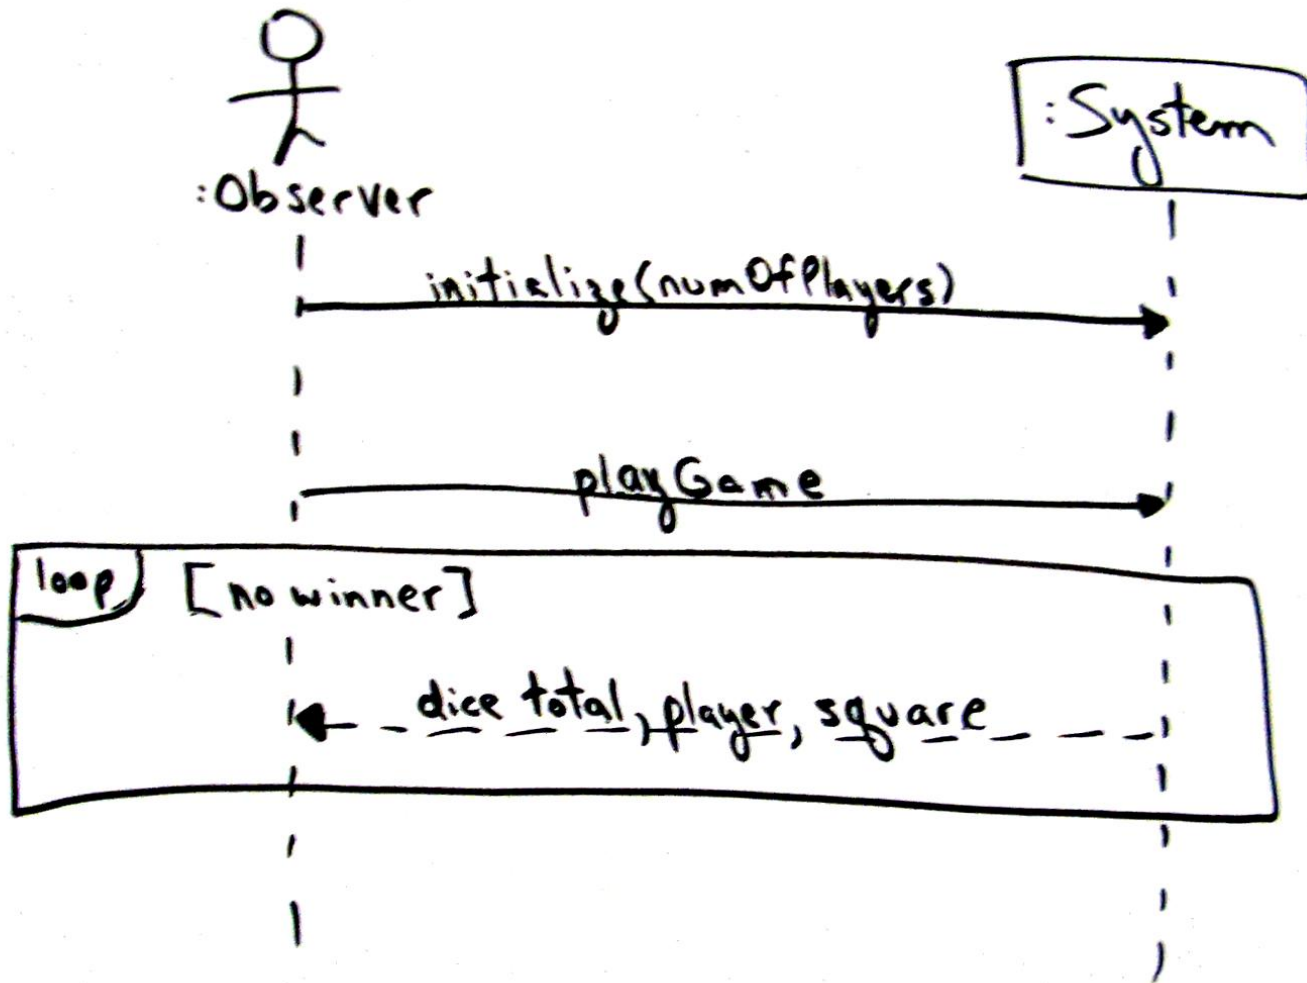 :System
:Observer
initialize(numOfPlayers)
playGame
loop [no winner]
dice total, player, square